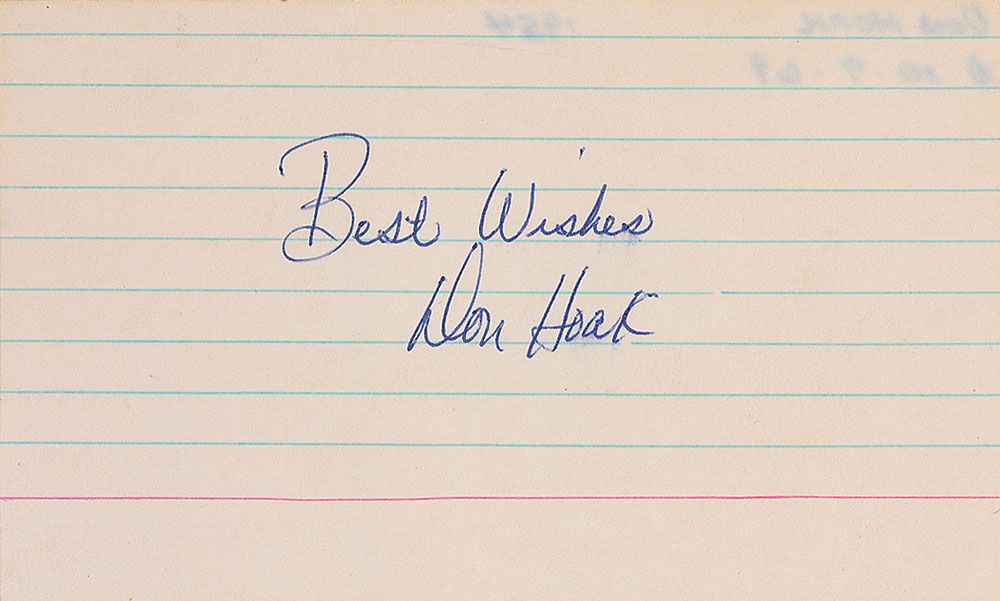 Best Wishes
Don Hoak